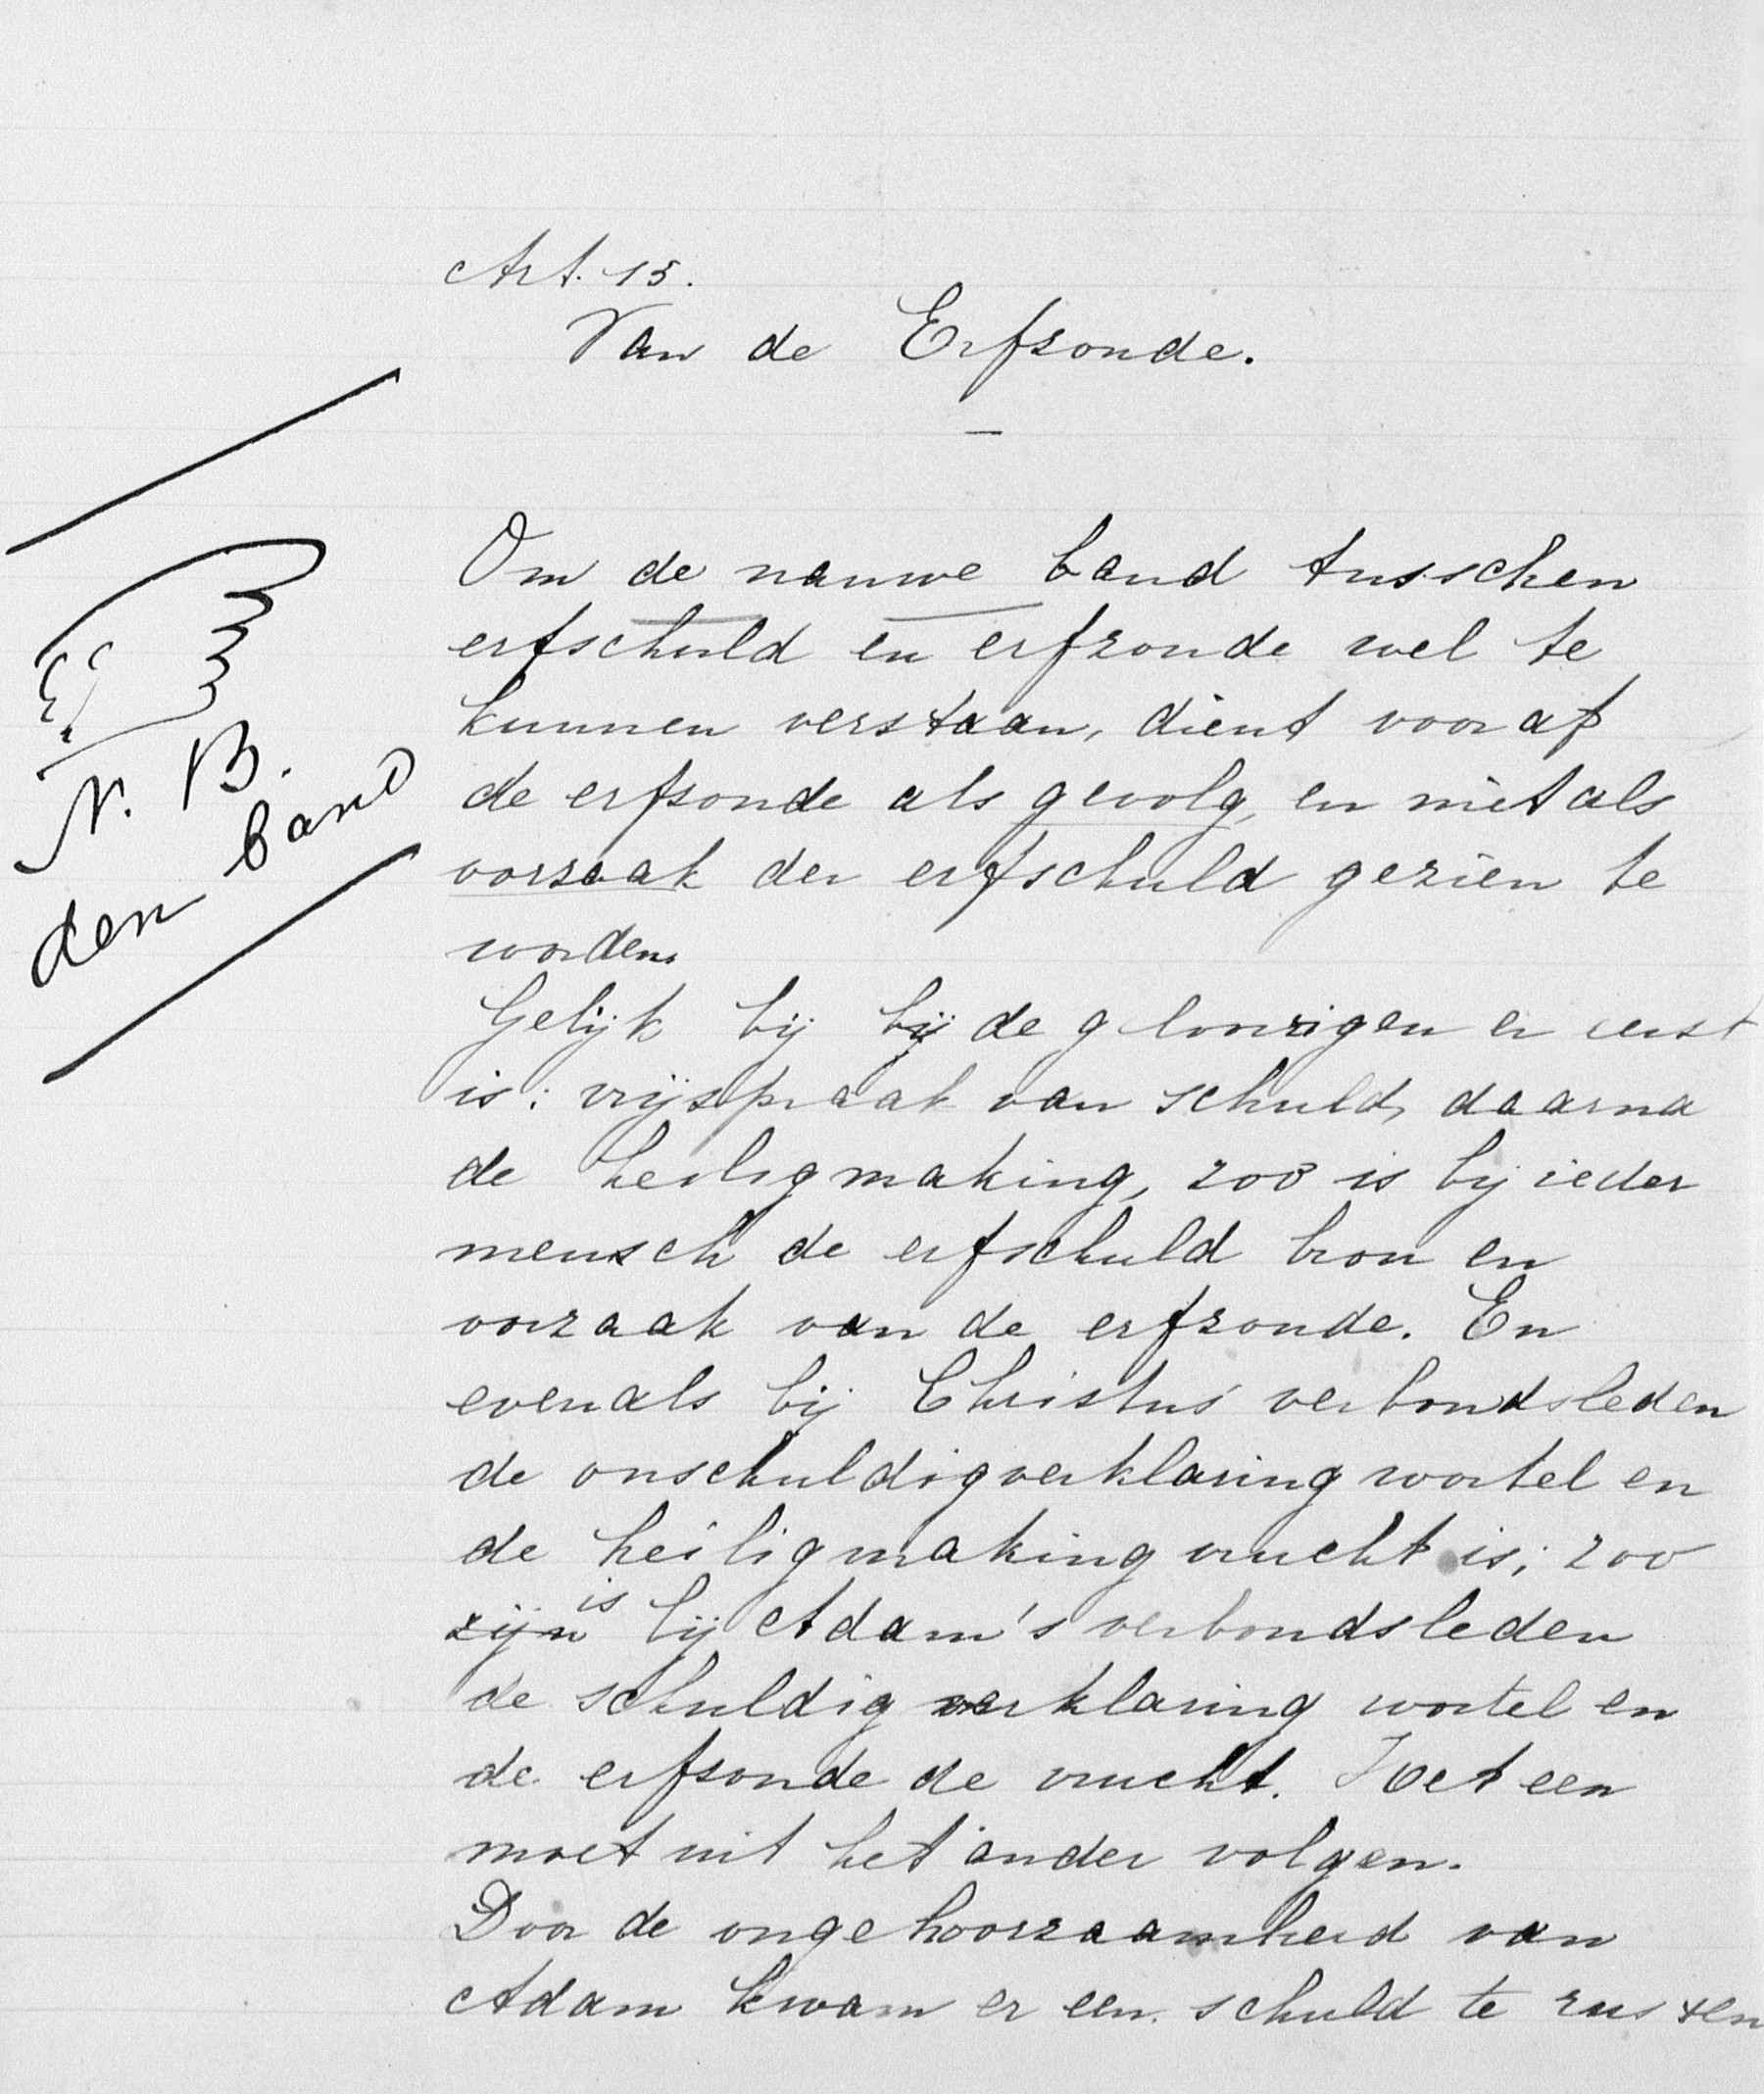 Art. 15.
Van de Erfzonde.
—
N. B.
den band
Om de nauwe band tusschen
erfschuld en erfzonde wel te
kunnen verstaan, dient vooraf
de erfzonde als gevolg, en niet als
oorzaak der erfschuld gezien te
worden.
Gelijk bij bij de geloovigen er eerst
is: vrijspraak van schuld, daarna
de heiligmaking, zoo is bij ieder
mensch de erfschuld bron en
oorzaak van de erfzonde. En
evenals bij Christus' verbondsleden
de onschuldigverklaring wortel en
de heiligmaking vrucht is; zoo
zijn is bij Adam's verbondsleden
de schuldig verklaring wortel en
de erfzonde de vrucht. Het een
moet uit het ander volgen.
Door de ongehoorzaamheid van
Adam kwam er een schuld te rusten